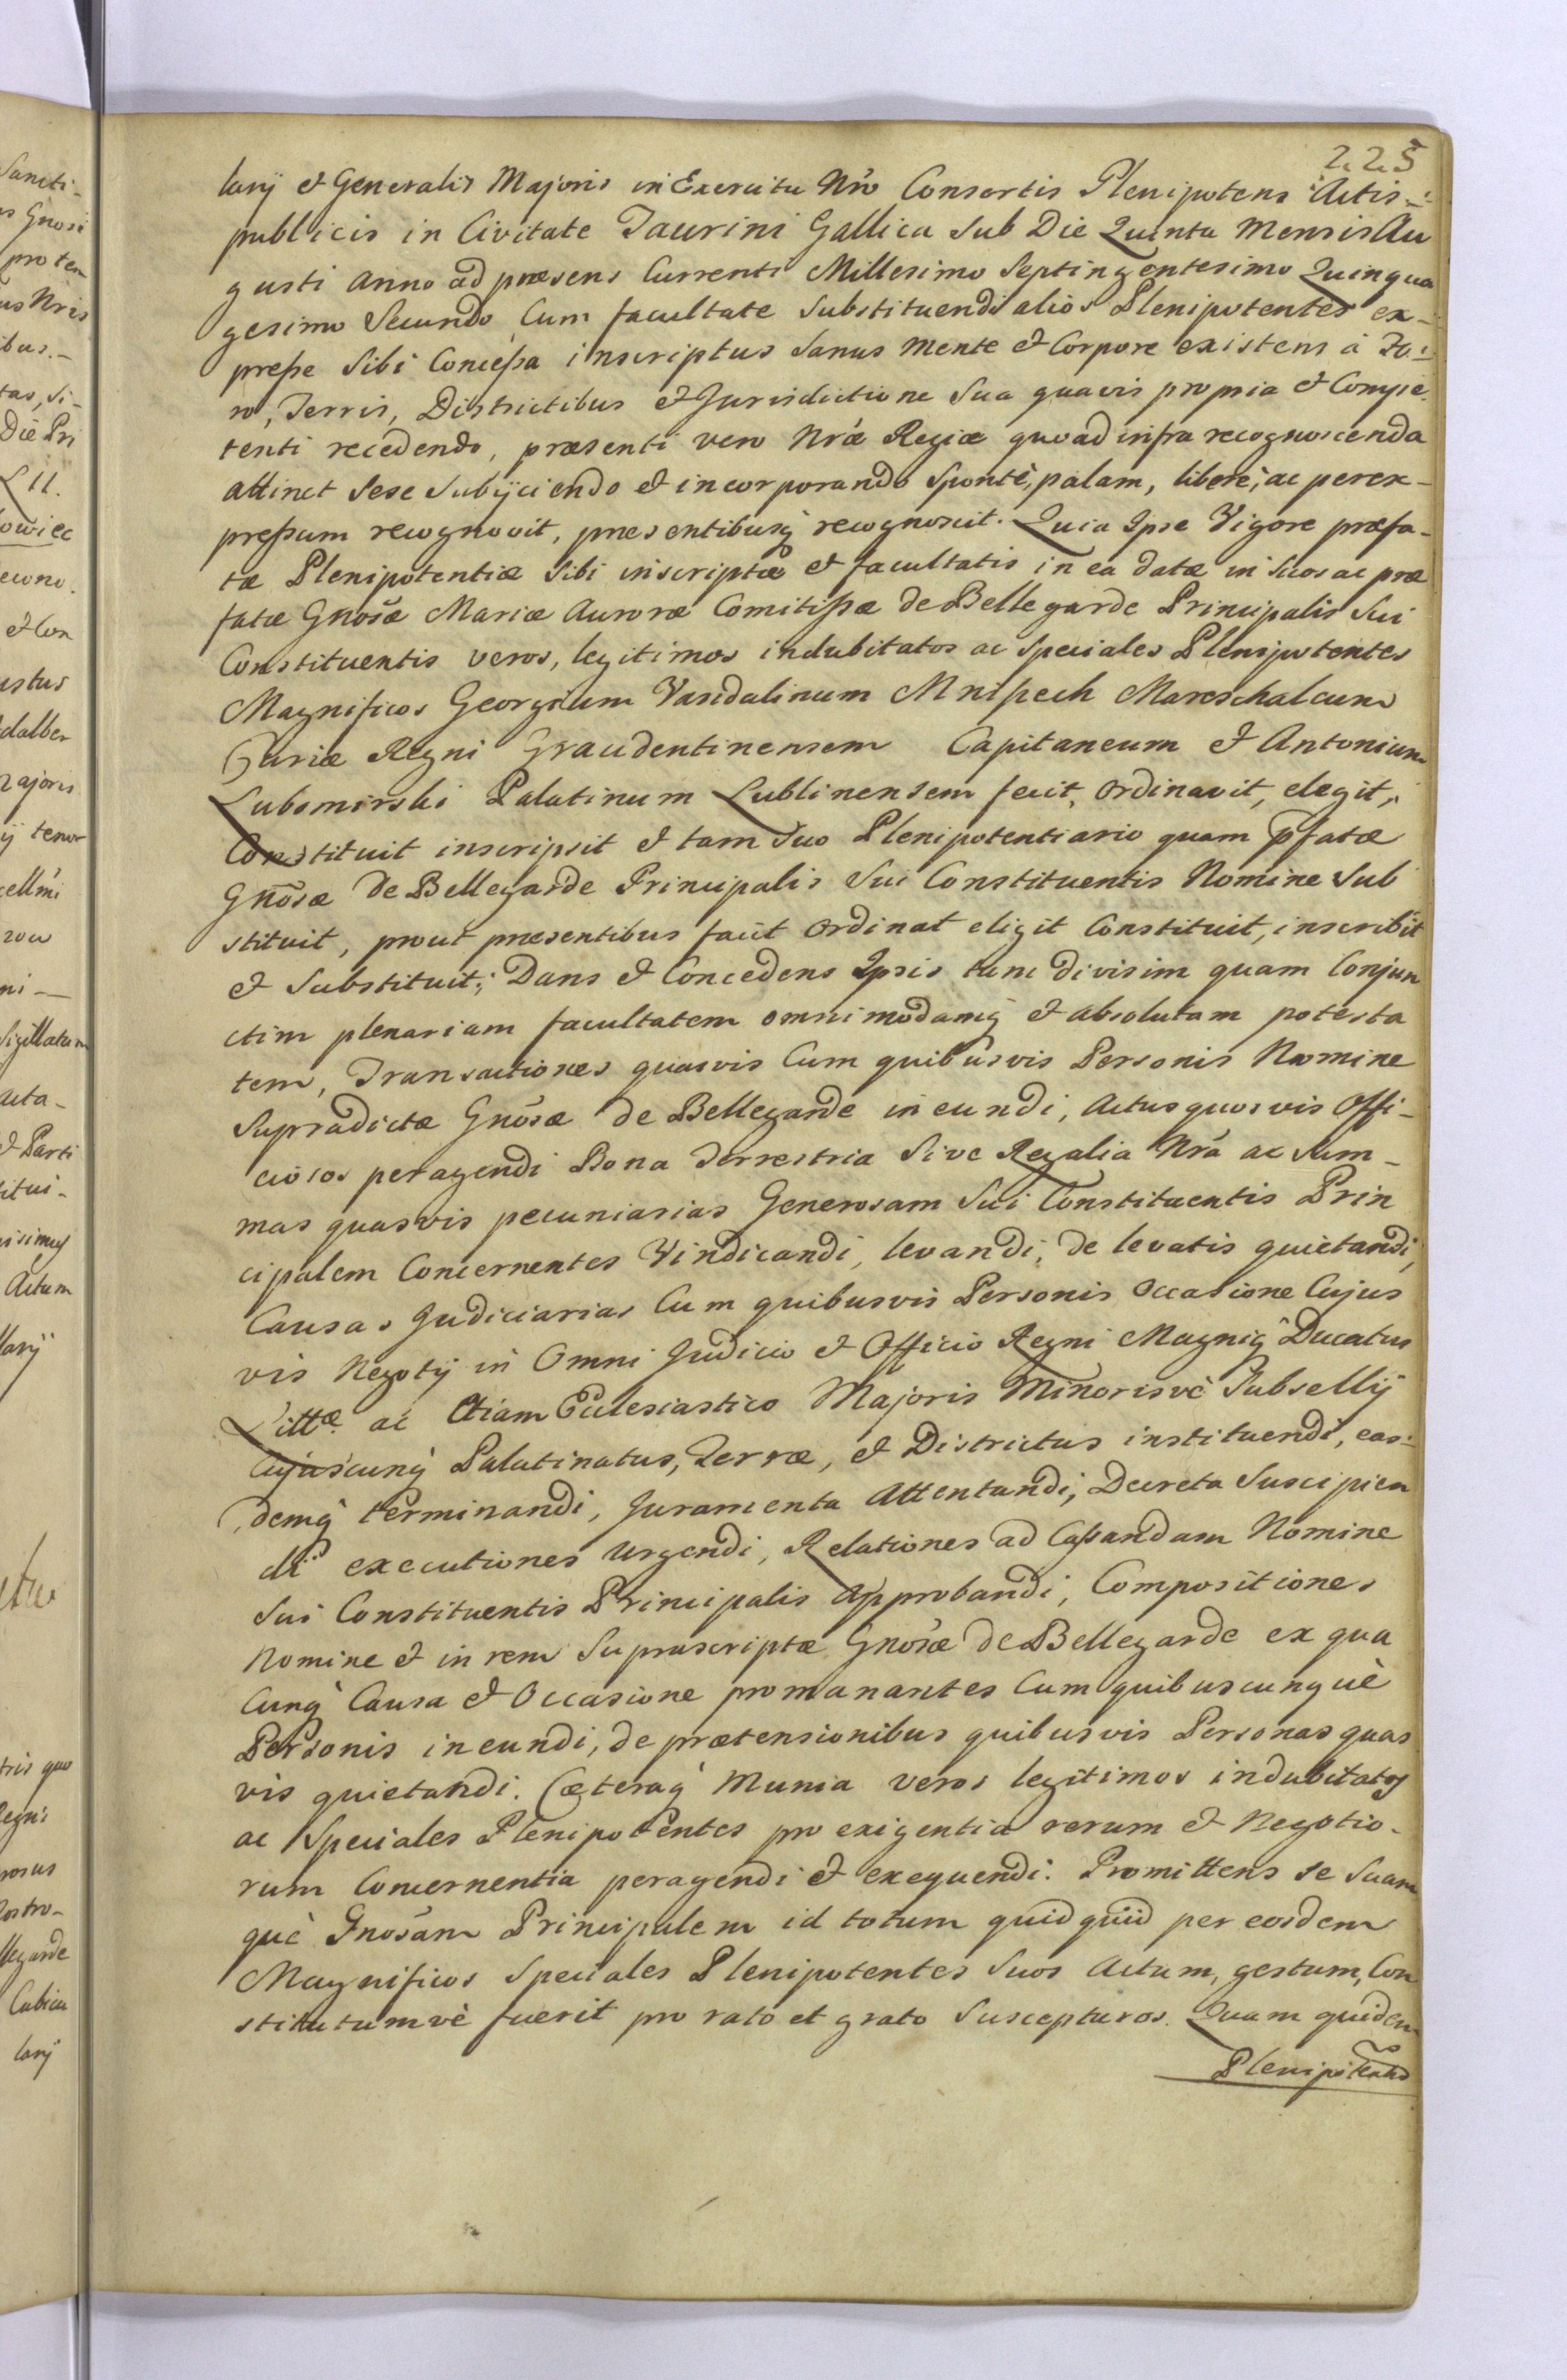 225
larij et Generalis Majoris in Exercitu Nro Consortis Plenipotens Actis-
publicis in Civitate Taurini Gallica sub Die Quinta Mensis Au
gusti anno ad præsens Currenti Millesimo Septingentesimo Quinqua
gesimo Secundo Cum facultate substituendi alios Plenipotentes ex-
preße Sibi Conceßa inscriptus sanus mente et Corpore existens à Fo-
ro, Terris, Districtibus et Jurisdictione Sua quavis propria et Compe
tenti recedendo, præsenti vero Nræ Regiæ quoad infra recognoscenda
attinet sese subijciendo et incorporando spontè, palam, liberè, ac perex-
preßum recognovit, præsentibusq recognoscit. Quia Ipse Vigore præfa-
tæ Plenipotentiæ Sibi inscriptæ et facultatis in ea datæ in suos ac præ
fatæ Gnosæ Mariæ Auroræ Comitißæ de Bellegarde Principalis Sui
Constituentis veros, legitimos indubitatos ac speciales Plenipotentes
Magnificos Georgium Vandalinum Mnißech Mareschalcum
Curiæ Regni Graudentinensem Capitaneum et Antonium
Lubomirski Palatinum Lublinensem fecit, ordinavit, elegit,
Constituit inscripsit et tam suo Plenipotentiario quam pfatæ
Gnosæ de Bellegarde Principalis Sui Constituentis Nomine Sub
stituit, prout præsentibus facit ordinat eligit Constituit, inscribit
et Substituit; Dans et Concedens Ipsis tam divisim quam Conjun
ctim plenariam facultatem omnimodamq et absolutam potesta
tem, Transactiones quasvis Cum quibusvis Personis Nomine
Supradictæ Gnosæ de Bellegarde ineundi, Actus quosvis Offi-
ciosos peragendi Bona Terrestria Sive Regalia Nra ac sum-
mas quasvis pecuniarias Generosam Sui Constituentis Prin
cipalem Concernentes Vindicandi, levandi, de levatis quietandi,
Causas Judiciarias Cum quibusvis Personis Occasione Cujus
vis Negotij in Omni Judicio et Officio Regni Magniq Ducatus
Littæ ac Etiam Ecclesiastico Majoris Minorisvè Subsellij
Cujuscunq Palatinatus, Terræ, et Districtus instituendi, eas-
demq terminandi, Juramenta Attentandi, Decreta Suscipien
di executiones urgendi, Relationes ad Caßandam Nomine
Sui Constituentis Principalis Approbandi, Compositiones
Nomine et in rem Suprascriptæ Gnosæ de Bellegarde ex qua
Cunq Causa et Occasione promanantes Cum quibuscunquè
Personis ineundi, de prætensionibus quibusvis Personas quas
vis quietandi. Cæteraq Munia veros legitimos indubitatos
ac Speciales Plenipotentes pro exigentia rerum et Negotio-
rum Concernentia peragendi et exequendi. Promittens se Suam
què Gnosam Principalem id totum quidquid per eosdem
Magnificos Speciales Plenipotentes Suos Actum, gestum, Con
stitutumvè fuerit pro rato et grato Suscepturos. Quam quidem